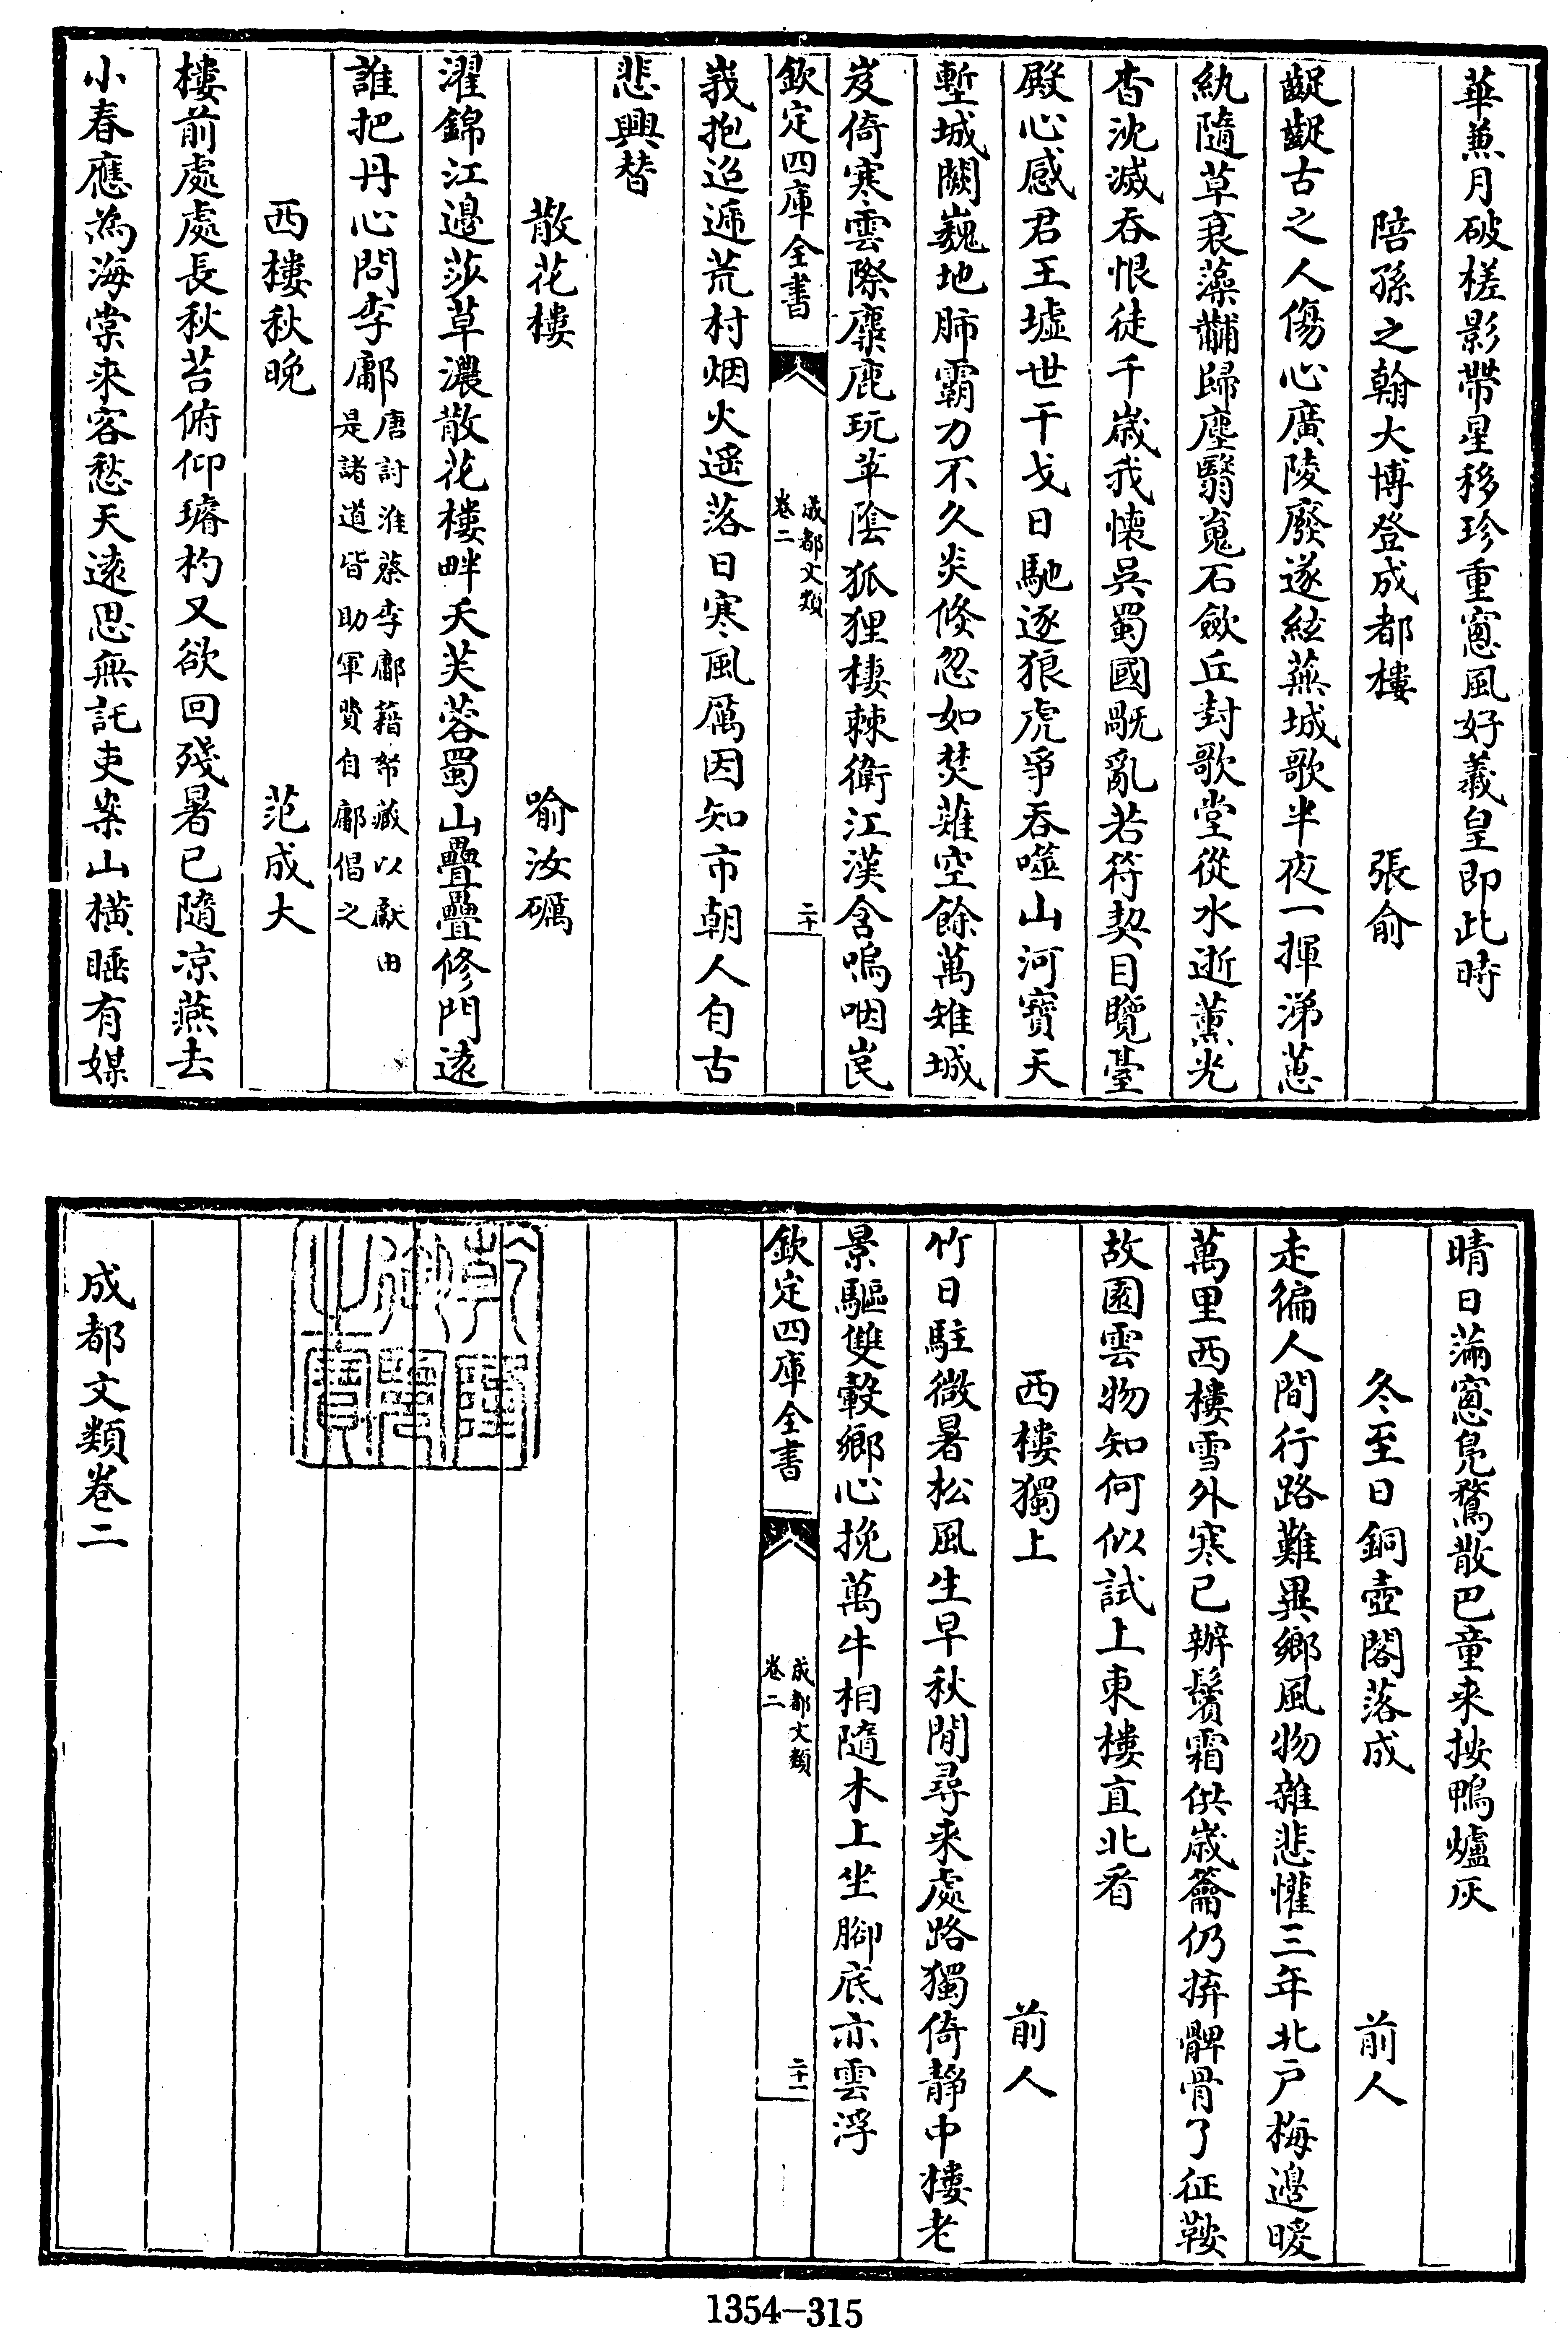 華兼月破槎影帶星移珍重窻風好羲皇即此時
陪孫之翰大博登成都樓 張俞
齪齪古之人傷心廣陵廢遂絃蕪城歌半夜一揮涕蕙
紈隨草衰藻黼歸塵翳嵬石斂丘封歌堂從水逝薰光
杳沈滅吞恨徒千歳我懐吳蜀國旣亂若符契目覽臺
殿心感君王墟世干戈日馳逐狼虎爭吞噬山河寶天
塹城闕巍地肺霸力不久炎倐忽如焚薙空餘萬雉城
岌倚寒雲際麋鹿玩苹陰狐狸棲棘衛江漢含嗚咽岷
欽定四庫全書 成都文類 卷二 二十
峩抱迢遞荒村烟火遥落日寒風厲因知市朝人自古
悲興替
散花樓 喻汝礪
濯錦江邊莎草濃散花樓畔夭芙蓉蜀山疊疊修門逺
誰把丹心問李鄘 唐討淮蔡李鄘籍帑藏以獻由
是諸道皆助軍費自鄘倡之
西樓秋晚 范成大
樓前處處長秋苔俯仰璿杓又欲回殘暑已隨凉燕去
小春應為海棠来客愁天逺思無託吏案山横睡有媒
晴日滿窻鳬鶩散巴童来按鴨爐灰
冬至日銅壺閣落成 前人
走徧人間行路難異鄉風物雜悲懽三年北户梅邊暖
萬里西樓雪外寒已辦鬢霜供歳籥仍拚髀骨了征鞍
故園雲物知何似試上東樓直北看
西樓獨上 前人
竹日駐微暑松風生早秋閒尋来處路獨倚静中樓老
景驅雙轂鄉心挽萬牛相隨木上坐腳底亦雲浮
欽定四庫全書 成都文類 卷二 二十一
乾隆御覽之寶
成都文類卷二
1354-315